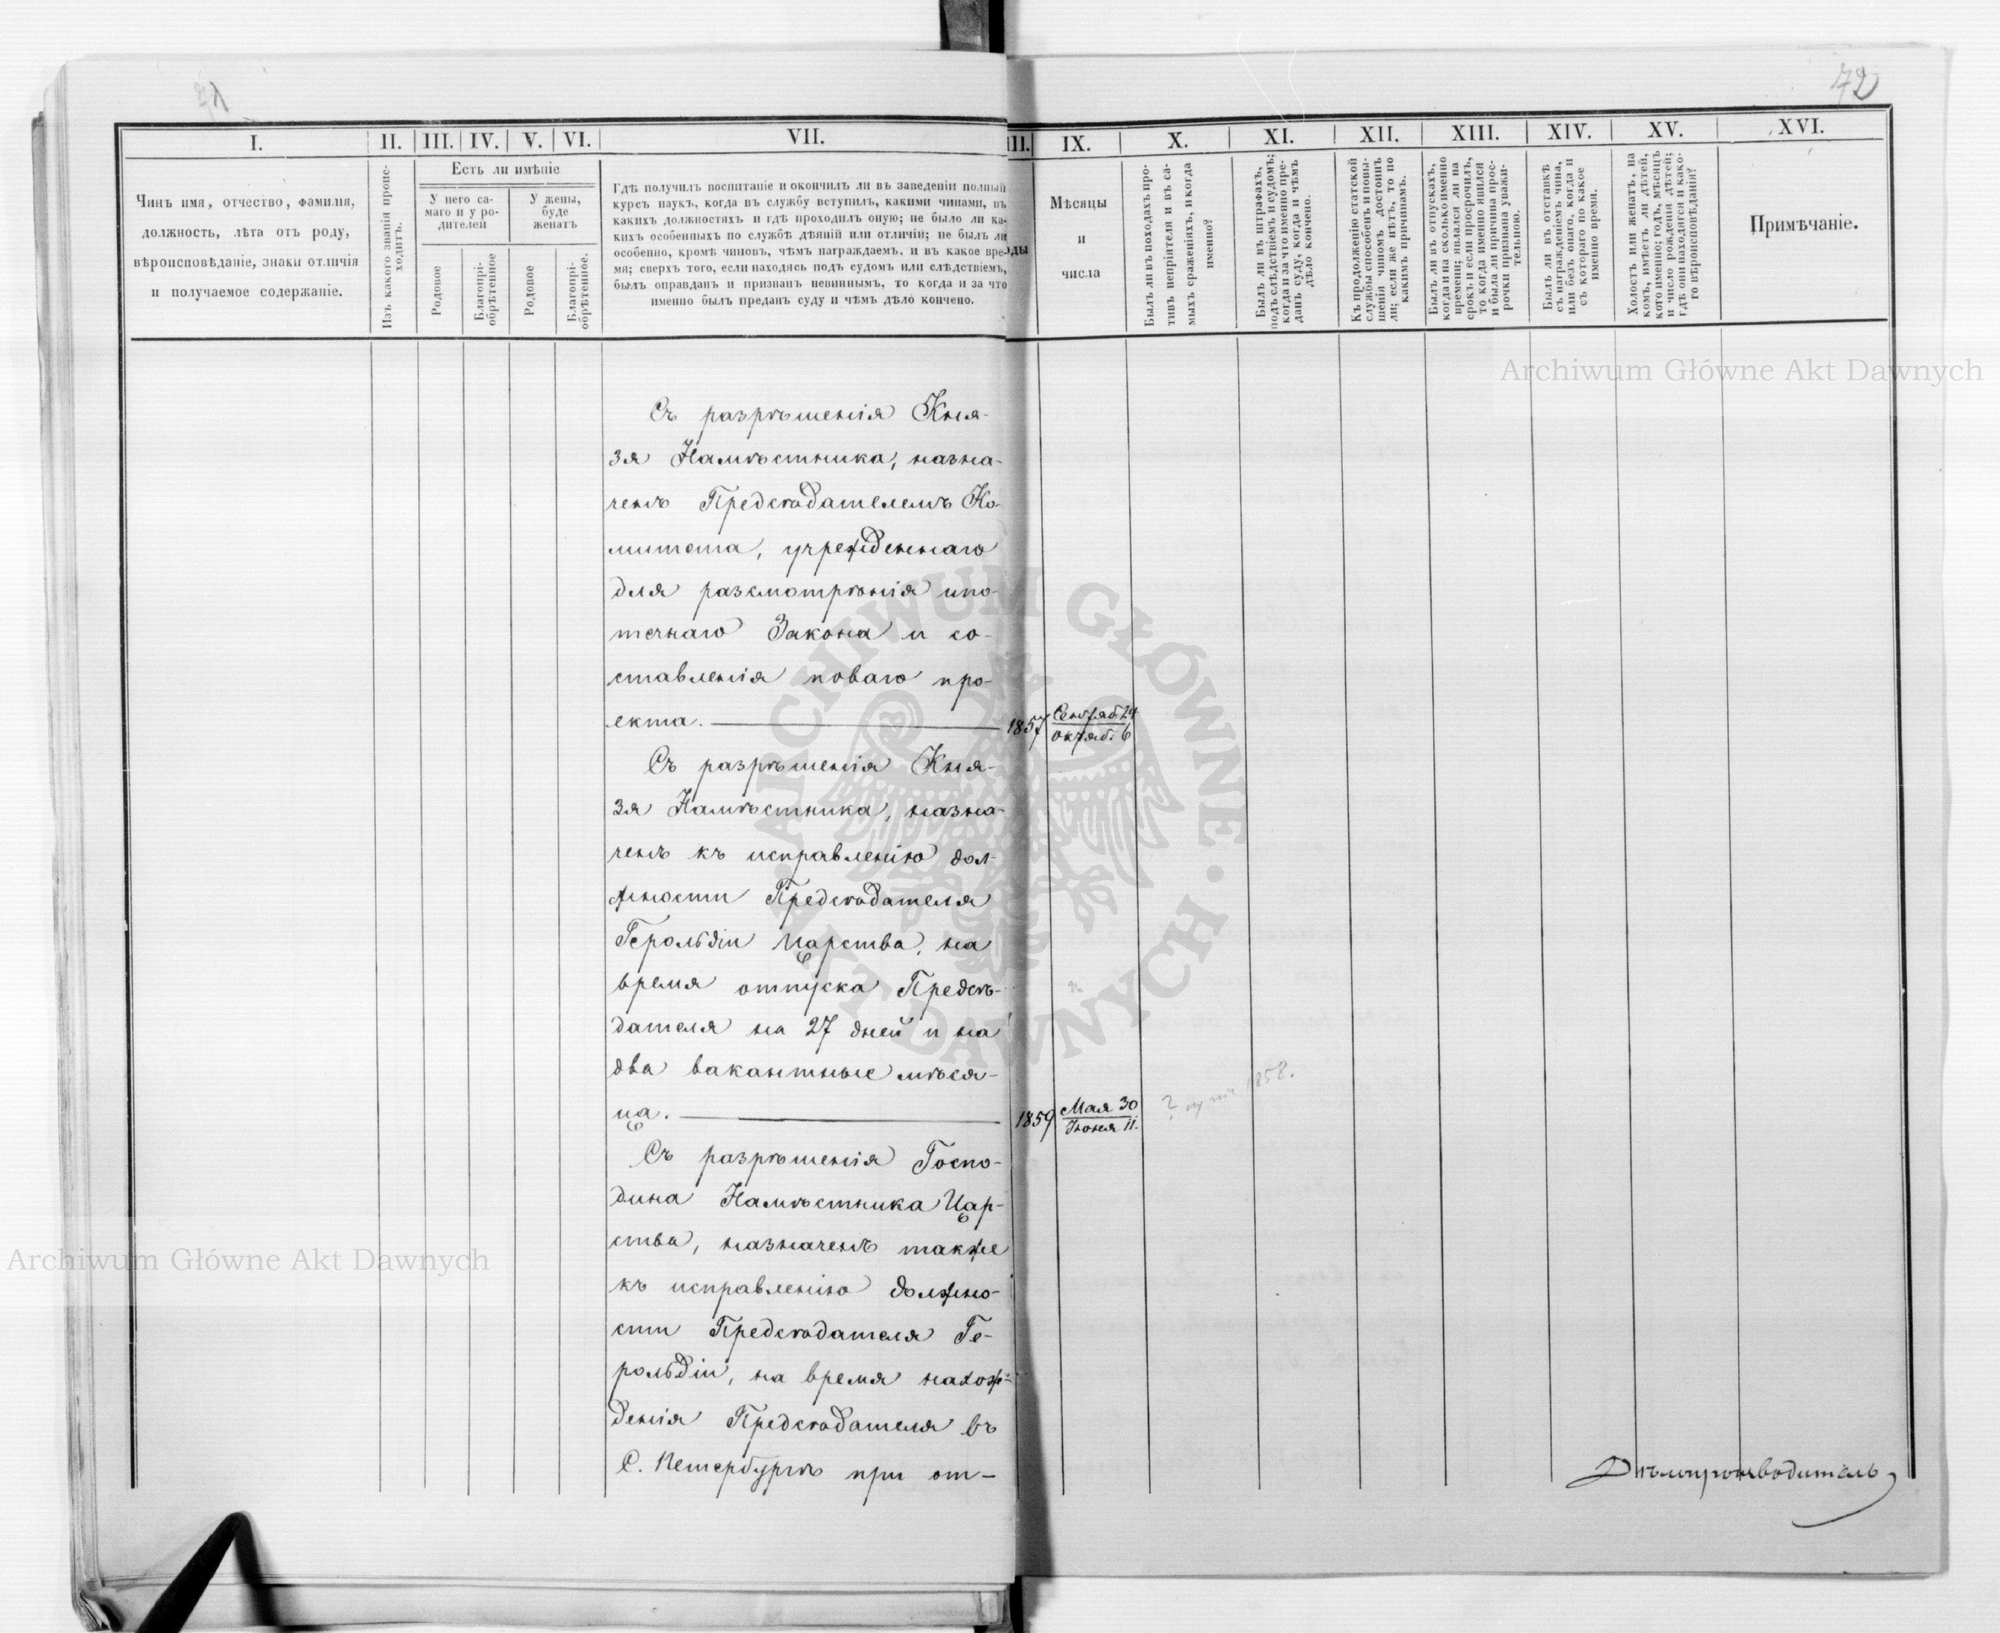 72
I.
II.
III.
IV.
V.
VI.
VII.
III.
IX.
X.
XI.
XII.
XIII.
XIV.
XV.
XVI.
Чинъ имя, отчество, фамилія,
должность, лѣта отъ роду,
вѣроисповѣданіе, знаки отличія
и получаемое содержаніе.
Изъ какого званія проис-
ходитъ.
Есть ли имѣніе
У него са-
маго и у ро-
дителей
У жены,
буде
женатъ
Родовое
Благопрі-
обрѣтенное
Родовое
Благопрі-
обрѣтенное.
Гдѣ получилъ воспитаніе и окончилъ ли въ заведеніи полный
курсъ наукъ, когда въ службу вступилъ, какими чинами, въ
какихъ должностяхъ и гдѣ проходилъ оную; не было ли ка-
кихъ особенныхъ по службѣ дѣяній или отличій; не былъ ли
особенно, кромѣ чиновъ, чѣмъ награждаемъ, и въ какое вре-
мя; сверхъ того, если находясь подъ судомъ или слѣдствіемъ,
былъ оправданъ и признанъ невиннымъ, то когда и за что
именно былъ преданъ суду и чѣмъ дѣло кончено.
оды
Мѣсяцы
и
числа
Былъ ли въ походахъ про-
тивъ непріятеля и въ са-
мыхъ сраженіяхъ, и когда
именно?
Былъ ли въ штрафахъ,
подъ слѣдствіемъ и судомъ;
когда и за что именно пре-
данъ суду, когда и чѣмъ
дѣло кончено.
Къ продолженію статской
службы способенъ и повы-
шенія чиномъ достоинъ
ли; если же нѣтъ, то по
какимъ причинамъ.
Былъ ли въ отпускахъ,
когда и на сколько именно
времени; являлся ли на
срокъ и если просрочилъ,
то когда именно явился
и была ли причина прос-
рочки признана уважи-
тельною.
Былъ ли въ отставкѣ
съ награжденіемъ чина,
или безъ онаго, когда и
съ котораго по какое
именно время.
Холостъ или женатъ, на
комъ, имѣетъ ли дѣтей,
кого именно; годъ, мѣсяцъ
и число рожденія дѣтей;
гдѣ они находятся и како-
го вѣроисповѣданія?
Примѣчаніе.
Съ разрѣшенія Кня-
зя Намѣстника, назна-
ченъ Предсѣдателемъ Ко-
митета, учрежденнаго
для разсмотрѣнія ипо-
течнаго Закона и со-
ставленія новаго про-
екта. 1857 Сентяб. 24
Октяб. 6
Съ разрѣшенія Кня-
зя Намѣстника, назна-
ченъ къ исправленію дол-
жности Предсѣдателя
Герольдіи Царства, на
время отпуска Предсѣ-
дателя на 27 дней и на
два вакантные мѣся-
ца. 1859 Мая 30
Іюня 11.
? 1858.
Съ разрѣшенія Госпо-
дина Намѣстника Цар-
ства, назначенъ также
къ исправленію должно-
сти Предсѣдателя Ге-
рольдіи, на время нахож-
денія Предсѣдателя въ
С. Петербургѣ при от-
Дѣлопроизводитель
Archiwum Główne Akt Dawnych
Archiwum Główne Akt Dawnych
ARCHIWUM GŁÓWNE AKT DAWNYCH